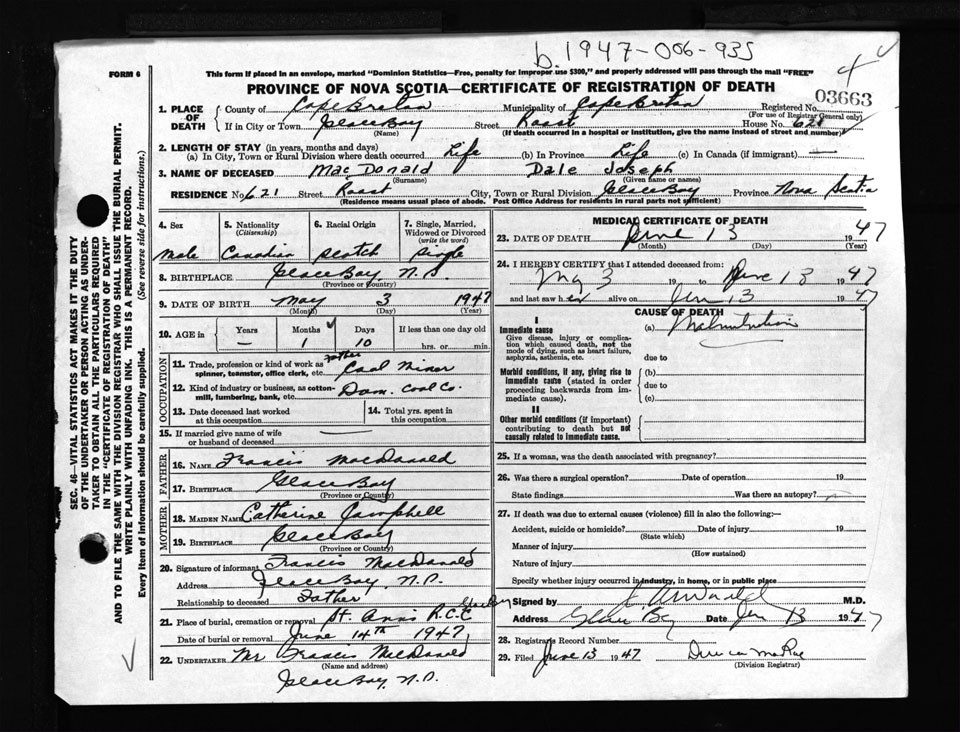 b.1947-006-935
4
FORM 6
This form if placed in an envelope, marked "Dominion Statistics—Free, penalty for improper use $300," and properly addressed will pass through the mail "FREE"
PROVINCE OF NOVA SCOTIA—CERTIFICATE OF REGISTRATION OF DEATH
03663
1. PLACE OF DEATH County of Cape Breton Municipality of Cape Breton Registered No.
(For use of Registrar General only)
If in City or Town Glace Bay Street House No. 621
(Name) (If death occurred in a hospital or institution, give the name instead of street and number)
2. LENGTH OF STAY (in years, months and days)
(a) In City, Town or Rural Division where death occurred Life (b) In Province Life (c) In Canada (if immigrant) —
3. NAME OF DECEASED MacDonald Dale Joseph
(Surname) (Given name or names)
RESIDENCE No. 621 Street City, Town or Rural Division Glace Bay Province Nova Scotia
(Residence means usual place of abode. Post Office Address for residents in rural parts not sufficient)
4. Sex 5. Nationality (Citizenship) 6. Racial Origin 7. Single, Married, Widowed or Divorced (write the word)
Male Canadian Scotch Single
8. BIRTHPLACE Glace Bay N.S
(Province or Country)
9. DATE OF BIRTH May 3 1947
(Month) (Day) (Year)
10. AGE in Years Months Days If less than one day old
— 1 10 hrs. or min.
OCCUPATION
11. Trade, profession or kind of work as spinner, teamster, office clerk, etc. Father Coal Miner
12. Kind of industry or business, as cotton-mill, lumbering, bank, etc. Dom. Coal Co.
13. Date deceased last worked at this occupation 14. Total yrs. spent in this occupation
15. If married give name of wife or husband of deceased —
FATHER
16. NAME Francis MacDonald
17. BIRTHPLACE Glace Bay
(Province or Country)
MOTHER
18. MAIDEN NAME Catherine Campbell
19. BIRTHPLACE Glace Bay
(Province or Country)
20. Signature of informant Francis MacDonald
Address Glace Bay, N.S.
Relationship to deceased Father
21. Place of burial, cremation or removal St. Anns R.C.C Glace Bay
Date of burial or removal June 14th 1947
22. UNDERTAKER Mr Francis MacDonald
(Name and address)
Glace Bay, N.S.
MEDICAL CERTIFICATE OF DEATH
23. DATE OF DEATH June 13 1947
(Month) (Day) (Year)
24. I HEREBY CERTIFY that I attended deceased from:
May 3 19 to June 13 1947
and last saw h alive on Jun 13 1947
CAUSE OF DEATH
I
Immediate cause (a) Malnutrition
Give disease, injury or complication which caused death, not the mode of dying, such as heart failure, asphyxia, asthenia, etc.
due to
Morbid conditions, if any, giving rise to immediate cause (stated in order proceeding backwards from immediate cause).
(b)
due to
(c)
II
Other morbid conditions (if important) contributing to death but not causally related to immediate cause.
25. If a woman, was the death associated with pregnancy?
26. Was there a surgical operation? Date of operation 19
State findings Was there an autopsy?
27. If death was due to external causes (violence) fill in also the following:—
Accident, suicide or homicide? Date of injury 19
(State which)
Manner of injury
(How sustained)
Nature of injury
Specify whether injury occurred in industry, in home, or in public place
Signed by M.D.
Address Glace Bay Date Jun 13 1947
28. Registrars Record Number
29. Filed June 13 1947 Duncan MacRae
(Division Registrar)
SEC. 46—VITAL STATISTICS ACT MAKES IT THE DUTY
OF THE UNDERTAKER OR PERSON ACTING AS UNDER-
TAKER TO OBTAIN ALL THE PARTICULARS REQUIRED
IN THE "CERTIFICATE OF REGISTRATION OF DEATH"
AND TO FILE THE SAME WITH THE DIVISION REGISTRAR WHO SHALL ISSUE THE BURIAL PERMIT.
WRITE PLAINLY WITH UNFADING INK. THIS IS A PERMANENT RECORD.
Every item of Information should be carefully supplied. (See reverse side for Instructions.)